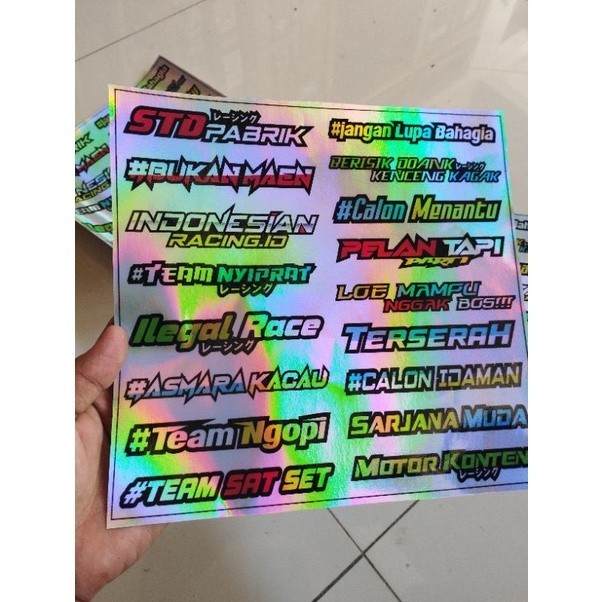 STD レーシング
PABRIK
#BUKAN MAEN
INDONESIAN
RACING.ID
#TEAM NYIPRAT
レーシング
Ilegal Race
レーシング
#ASMARA KACAU
#Team Ngopi
#TEAM SAT SET
#jangan Lupa Bahagia
BERISIK DOANK レーシング
KENCENG KAGAK
#Calon Menantu
PELAN TAPI
PASTI
LOE MAMPU
NGGAK BOS!!!
TERSERAH
#CALON IDAMAN
SARJANA MUDA
MOTOR KONTEN
レーシング